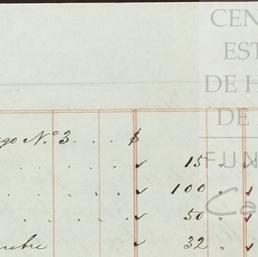 CEN
EST
DE H
DE
FUN
Ca
go N.º 3 . . . $
. . . . ✓ 15 "
. . . . ✓ 100 "
. . . . ✓ 50 "
mbre ✓ 32 "